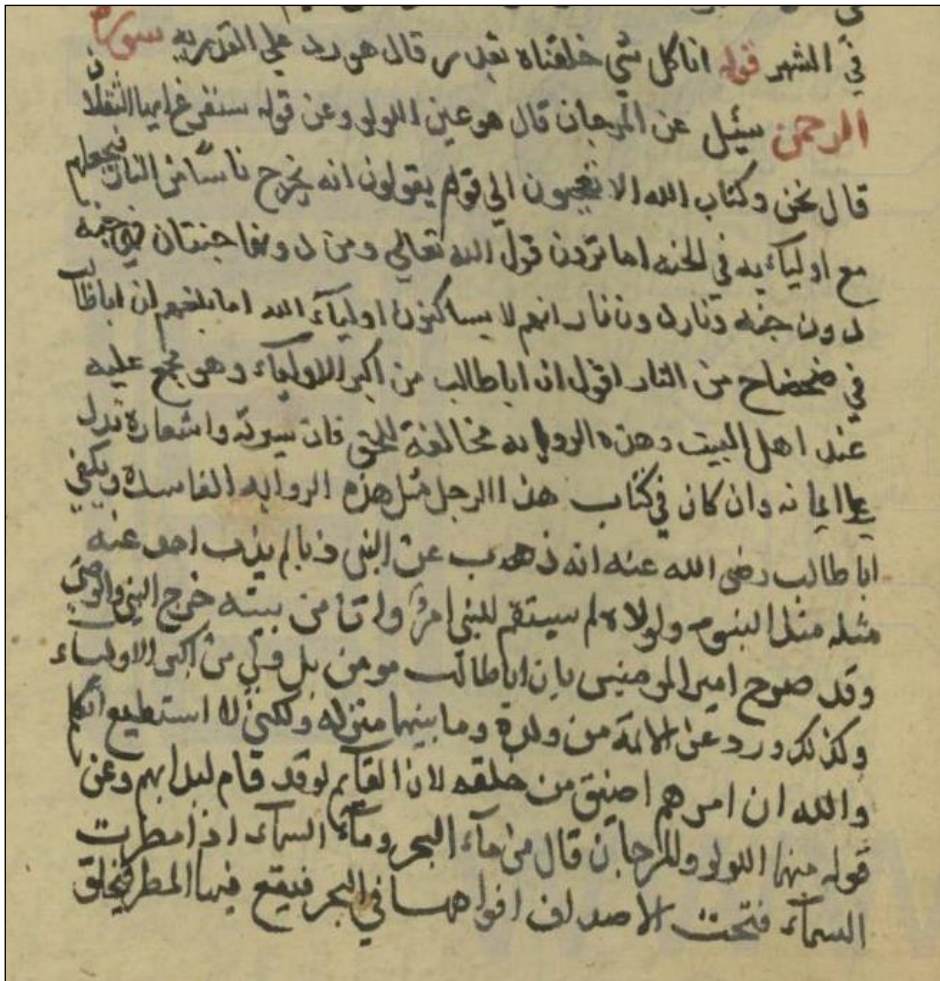 في الشهر قوله انا كل شي خلقناه بقدر قال هو رد علي القدريه سورة
الرحمن سيئل عن المرجان قال هو عين اللولو وعن قوله سنفرغ ايها الثقلان
قال نحن وكتاب الله الا تعجبون الي قوم يقولون انه يخرج ناسًا من النار فيجعلهم
مع اوليآيه في الجنه اما ترون قول الله تعالي ومن دونهما جنتان جنه
دون جنه ونار دون نار انهم لا يساكنون اوليآء الله اما بلغهم ان اباطالب
في ضحضاح من النار اقول ان اباطالب من اكبر الاوليآء وهو مجمع عليه
عند اهل البيت وهذه الروايه مخالفة للحق فان سيرته واشعاره تدل
علي ايمانه وان كان في كتاب هذا الرجل مثل هذه الروايه الفاسدة ويكفي
اباطالب رضى الله عنه انه ذهب عن النبي ذبا لم يذب احد عنه
مثله مثل البنوه ولولاه لم سيتقم للنبي امرٌ وان من بيته خرج النبي والوصي
وقد صرح امير المومنين بان اباطالب مومن بل من اكبر الاولياء
وكذلك ورد عن الائمة من ولده وما بينهما منزله ولكني لا استطيع اتكلم
والله ان امرهم اضيق من حلقه لان القآيم لو قد قام لبدا بهم وعن
قوله منهما اللولو والمرجان قال من مآء البحر ومآء السمآء اذا مطرت
السمآء فتحت الاصداف افواهها في البحر فيقع فيها المطر فيخلق